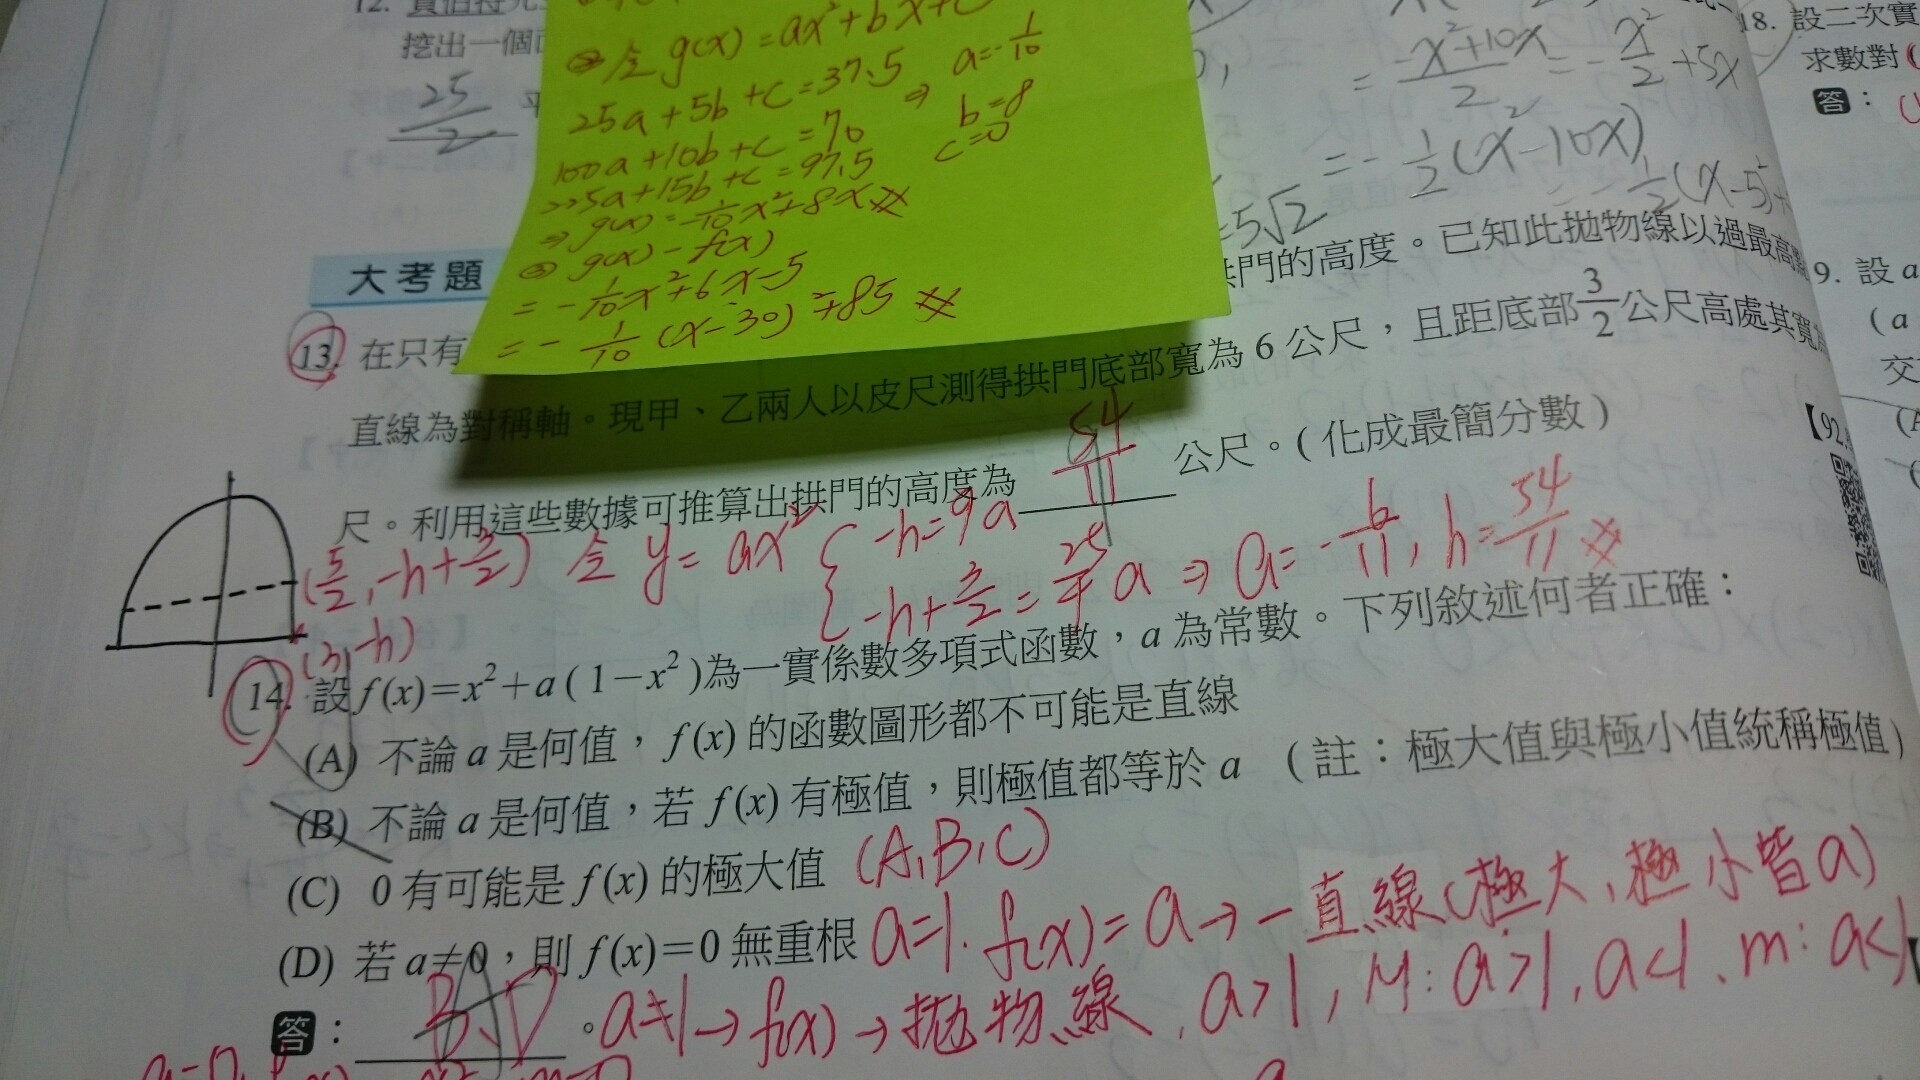 12.
挖出一個
25/2 平
② 令 g(x) = ax²+bx+c
25a+5b+c=37.5 ⇒ a=-1/10
100a+10b+c=70 b=8
225a+15b+c=97.5 c=0
⇒ g(x)=-1/10x²+8x
③ g(x)-f(x)
=-1/10x²+6x-5
=-1/10(x-30)²+85
= -x²+10x/2 = -x²/2+5x
=-1/2(x²-10x)
=-1/2(x-5)²+
=5√2
18. 設二次實
求數對(
答:(
大考題
13. 在只有
拱門的高度。已知此拋物線以過最高點
直線為對稱軸。現甲、乙兩人以皮尺測得拱門底部寬為 6 公尺,且距底部3/2公尺高處其寬為
尺。利用這些數據可推算出拱門的高度為 54/11 公尺。(化成最簡分數)
【92.
(5/2,-h+3/2) 令 y=ax² { -h=9a
-h+3/2=25/4a ⇒ a=-6/11, h=54/11
(3,-h)
14. 設 f(x)=x²+a(1-x²)為一實係數多項式函數,a 為常數。下列敘述何者正確:
(A) 不論 a 是何值,f(x) 的函數圖形都不可能是直線
(B) 不論 a 是何值,若 f(x) 有極值,則極值都等於 a (註:極大值與極小值統稱極值)
(C) 0 有可能是 f(x) 的極大值 (A,B,C)
(D) 若 a≠0,則 f(x)=0 無重根 a=1. f(x)=a→一直線(極大,極小皆a)
答: B、D 。a≠1→f(x)→拋物線, a>1, M: a>1, a<1、m: a<1
9. 設 a
(a
交
(A